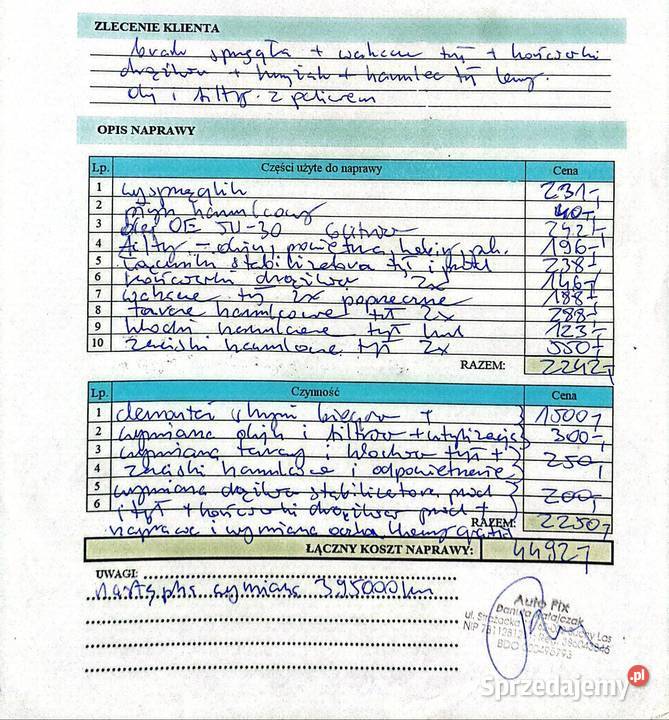 ZLECENIE KLIENTA
brak sprzęgła + wahacze tył + końcówki
drążków + + hamulec tył lewy.
olej i filtry z paliwem
OPIS NAPRAWY
Lp. Części użyte do naprawy Cena
1 wysprzęglik 231,-
2 płyn hamulcowy 40,-
3 olej OE 5W-30 6 litrów 242,-
4 filtry - oleju, powietrza, kabiny, pal. 196,-
5 łącznik stabilizatora tył i przód 238,-
6 końcówki drążków 2x 146,-
7 wahacze tył 2x poprzeczne 188,-
8 tarcze hamulcowe tył 2x 288,-
9 klocki hamulcowe tył kpl 123,-
10 zaciski hamulcowe tył 2x 550,-
RAZEM: 2242,-
Lp. Czynność Cena
1 demontaż skrzyni biegów + 1500,-
2 wymiana oleju i filtrów + utylizacja 300,-
3 wymiana tarczy i klocków tył +
4 zaciski hamulcowe i odpowietrzenie 250,-
5 wymiana drążków stabilizatora przód 200,-
6 i tył + końcówki drążków przód +
naprawa i wymiana gratis
RAZEM: 2250,-
ŁĄCZNY KOSZT NAPRAWY: 4492,-
UWAGI:
następna wymiana 395000 km
Auto Fix
Ratajczak
ul. Strażacka Las
NIP
BDO
Sprzedajemy.pl